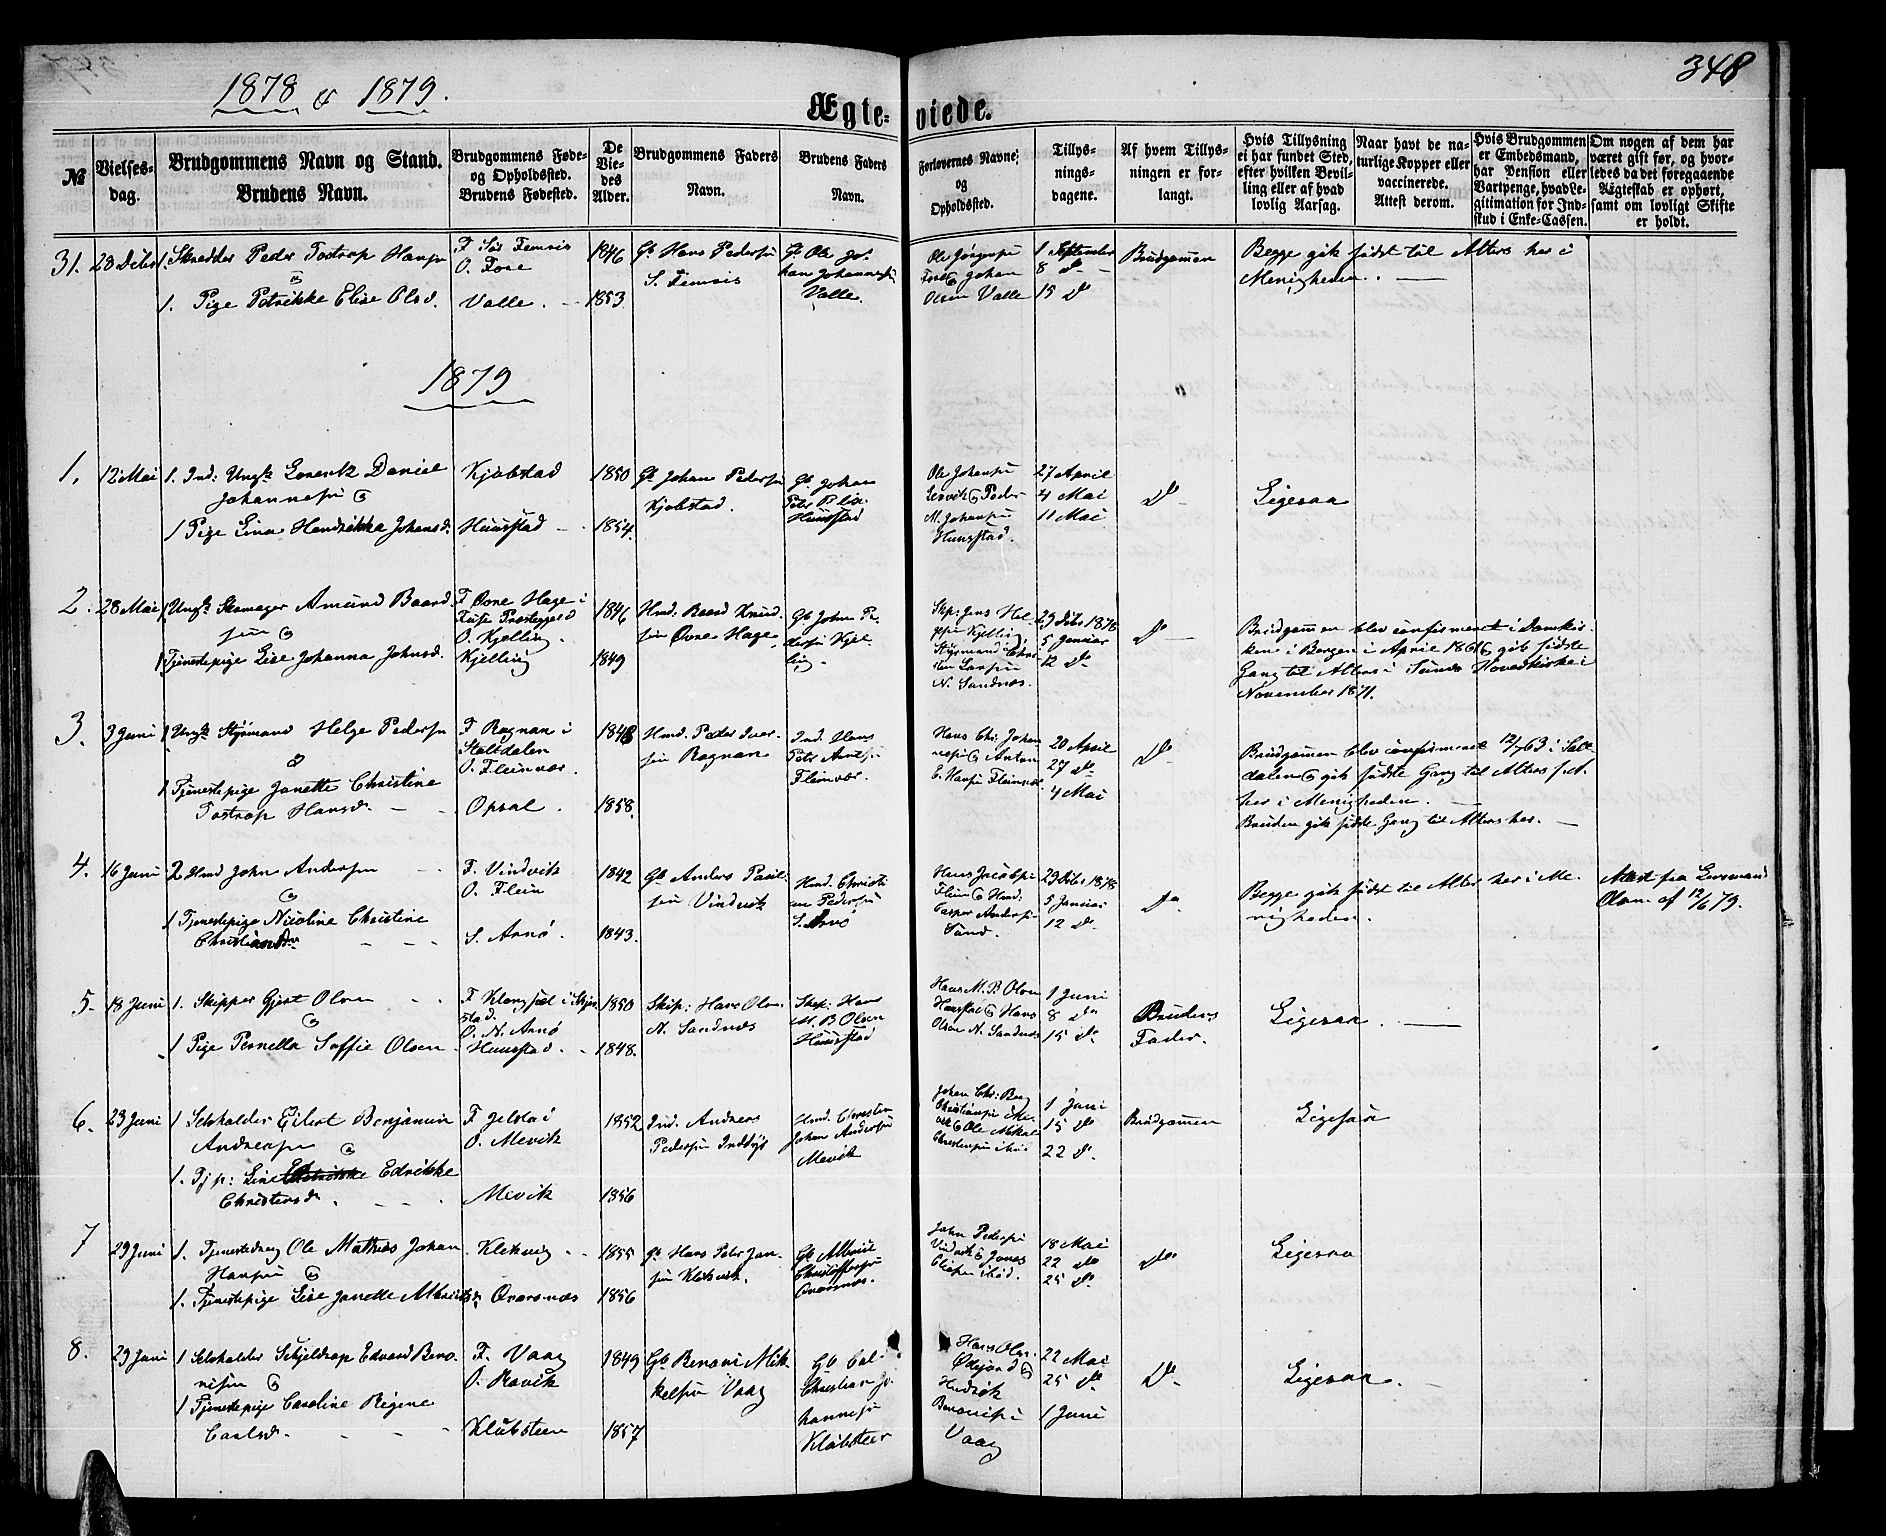 348
1878 & 1879.
Ægteviede.
№
Vielsesdag.
Brudgommens Navn og Stand.
Brudens Navn.
Brudgommens Føde-
og Opholdsted.
Brudens Fødested.
De
Vie-
des
Alder.
Brudgommens Faders
Navn.
Brudens Faders
Navn.
Forlovernes Navne;
og
Opholdsted.
Tillys-
nings-
dagene.
Af hvem Tillys-
ningen er for-
langt.
Hvis Tillysning
ei har fundet Sted,
efter hvilken Bevil-
ling eller af hvad
lovlig Aarsag.
Naar havt de na-
turlige Kopper eller
vaccinerede.
Attest derom.
Hvis Brudgommen
er Embedsmand,
har Pension eller
Vartpenge, hvad Le-
gitimation for Ind-
skud i Enke-Cassen.
Om nogen af dem har
været gift før, og hvor-
ledes da det foregaaende
Ægteskab er ophørt,
samt om lovligt Skifte
er holdt.
31. 28 Dcbr 1. Skredder Peder Tostrup Hansn
&
1. Pige Petrikke Elise Olsd.
O. Fore
Valle.
1846
1853
Gb Hans Pedersn
Gb Ole Jo-
han Johannessn
Valle.
Olsen Valle
1 September
8 do
15 do
Brudgommen
Begge gik sidst til Alters her i
Menigheden.
1879
1. 12 Mai 1. Ind: Ungk. Lorentz Daniel
Johannesn &
1 Pige Lina Hendrikke Johansd.
Kjøbstad
Hunstad
1850
1854.
Gb Johan Pedersn
Kjøbstad.
Gb Johan
Hunstad
Ole Johansn
Leivik & Peder
M. Johansn
Hunstad.
27 April
4 Mai
11 Mai
do
Ligesaa
2. 28 Mai 1 Ungk. Skomager Amund Baard-
sen &
1 Tjenestepige Lise Johanna Johnsd.
F Øvre Hage i
Fuse Præstegjeld
O. Kjelling.
Kjelling
1846
1849
Hmd: Baard Knud-
sen Øvre Hage.
Gb John Pe-
dersn Kjel-
ling.
Skp: Jens Hel-
gesn Kjelling,
Styrmand Chris-
ten Larsn
N. Sandnæs.
29 Dcbr 1878
5 Januar
12 do
do
Brudgommen blev confirmeret i Domkir-
ken i Bergen i April 1861 & gik sidste
Gang til Alters i Sunds Hovedkirke i
November 1871.
3. 9 Juni 1 Ungk. Styrmand Helge Pedersn
&
1 Tjenestepige Janette Christine
Tostrup Hansd.
F Rognan i
Saltdalen
O. Fleinvær.
Opsal.
1848
1858.
Hmd. Peder Iver-
sen Rognan
Ind. Hans
Fleinvær.
Hans Chr. Johan-
nesn & Anton
E. Hansn Fleinvær
20 April
27 do
4 Mai
do
Brudgommen blev confirmeret 12/7 63 i Salt-
dalen & gik sidste Gang til Alters f. A.
her i Menigheden.
Bruden gik sidste Gang til Alters her.
4. 16 Juni 2 Hmd John Andersen
&
1 Tjenestepige Nicoline Christine
Christiansdr
F. Vindvik
O. Flein
S. Arnø.
1842
1843.
Gb Anders Paul-
sen Vindvik
Hmd. Christi-
an Pedersn
S. Arnø
Hans Jacobsn
Flein & Hmd:
Casper Andersn
Sund.
29 Dcbr 1878
5 Januar
12 do
do
Begge gik sidst til Alter her i Me-
nigheden.
Attest fra Lensmand
Olsen af 12/6 79.
5. 18 Juni 1. Skipper Gjert Olsen
&
1 Pige Pernella Soffie Olsen
O. N. Arnø
Hunstad.
1850
1848.
Skip: Hans Olsn
N. Sandnæs
Skip: Hans
M. B Olsen
Hunstad
Hans M. B. Olsen
Hunstad & Hans
Olsen N. Sandnæs
1 Juni
8 do
15 do
Brudens
Fader.
Ligesaa.
6. 23 Juni 1 Selvholder Eilert Benjamin
Andreasn &
1. Tjp: Line Edrikke
Christensd.
O. Mevik
Mevik
1852
1856
Ind. Andreas
Pedersn Indbyg
Hmd. Christen
Johan Andersn
Mevik
Johan Chr: Berg
1 Juni
15 do
22 do
Brudgommen
Ligesaa
7 29 Juni 1. Tjenestedreng Ole Mathias Johan
Hansn &
1. Tjenestepige Lise Janette Albrigtsd.
Klekvig
Qvarsnæs
1855
1856
Gb Hans Peter Jan-
sen Klekvik.
Christoffersn
Qvarsnæs.
John Pedersn
Vindvik & Jonas
18 Mai
22 do
25 do
do
Ligesaa
8. 29 Juni 1 Selvholder Schjeldrup Edvard Beno-
nisn &
1 Tjenestepige Caroline Regine
Carlsd.
F. Vaag
O. Ravik
Klubsteen
1849
1857
Gb Benoni Mik-
kelsn Vaag
Gb Carl
Christian Jo-
hannesn
Klubsteen
Hans Olsn
Ødejord &
Hedrik
Benonisn
Vaag
22 Mai
25 do
1 Juni
do
Ligesaa.